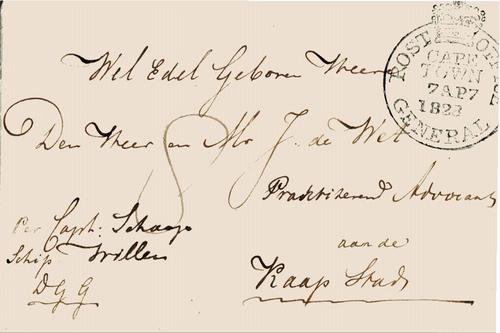 Wel Edel Geboren Heere
Den Heer en Mr J. de Wet
Practiserend Advocaat
aan de
Kaap Stad
Per Capt: Schaap
Schip Willem
D G G
POST OFFICE
CAPE
TOWN
7AP7
1823
GENERAL